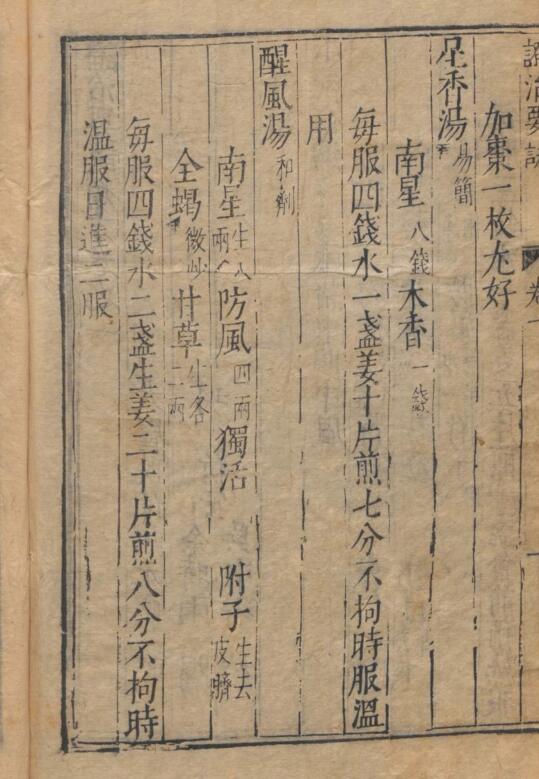 證治要訣 卷一
加棗一枚尤好
星香湯 易簡
南星八錢木香一錢
每服四錢水一盞姜十片煎七分不拘時服溫
用
醒風湯 和劑
南星生八兩防風四兩獨活 附子生去皮臍
全蝎微炒甘草生各二兩
每服四錢水二盞生姜二十片煎八分不拘時
温服日進二服